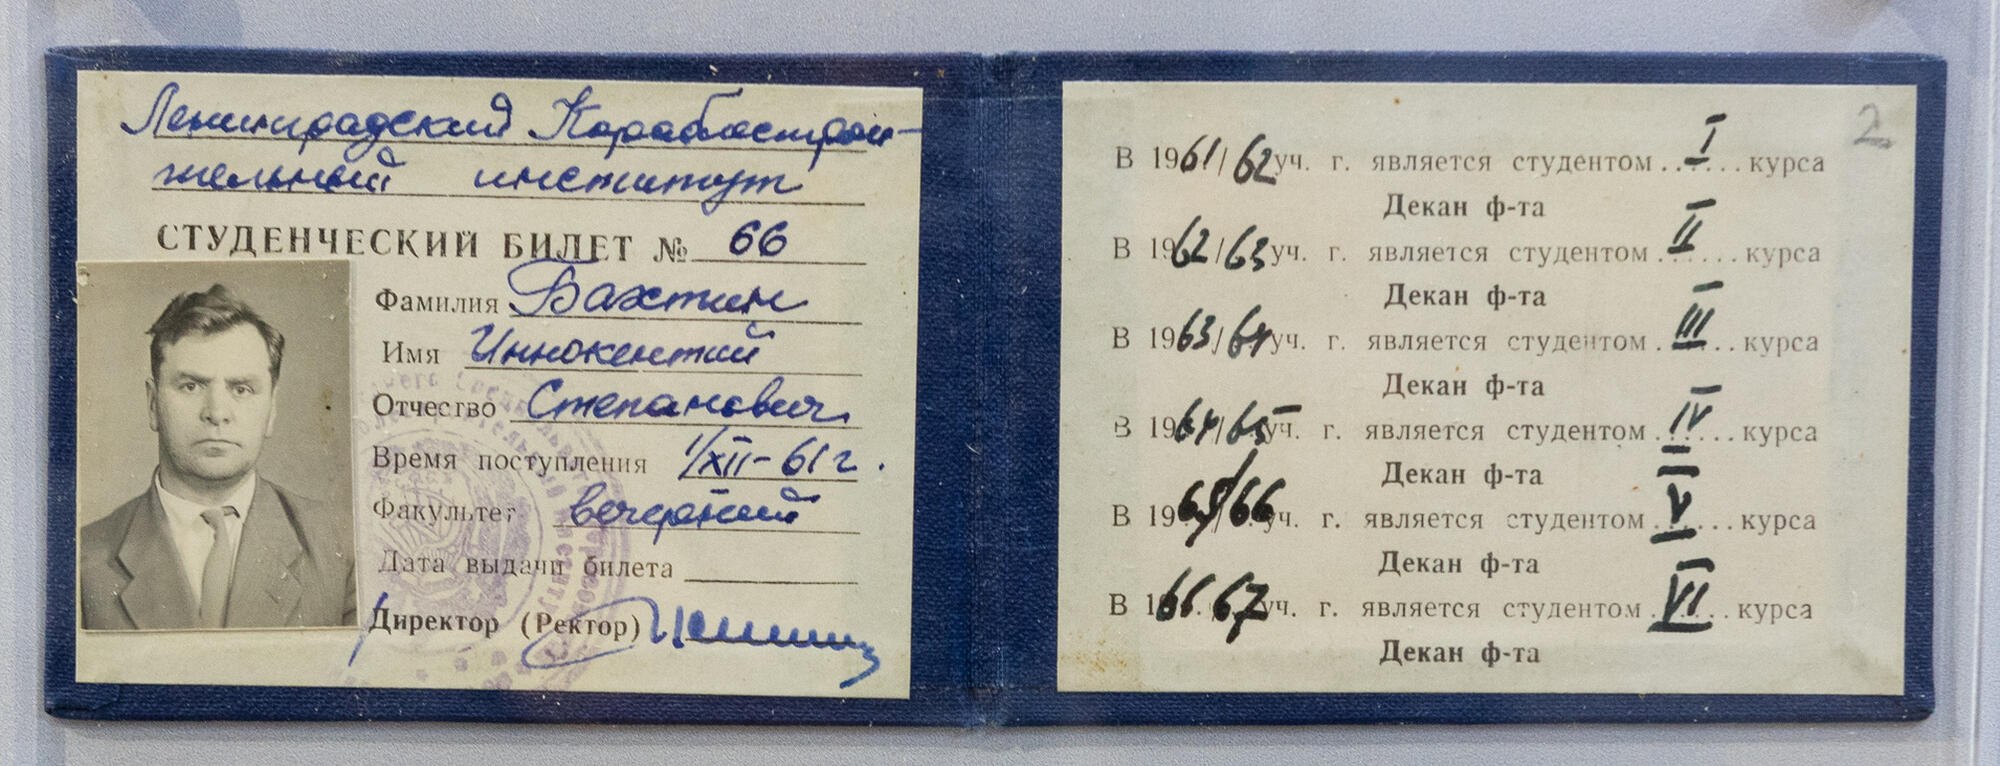 Ленинградский Кораблестрои-
тельный институт
СТУДЕНЧЕСКИЙ БИЛЕТ № 66
Фамилия Вахтин
Имя Иннокентий
Отчество Степанович
Время поступления 1/XII-61 г.
Факультет вечерний
Дата выдачи билета
Директор (Ректор)
2
В 1961/62 уч. г. является студентом I курса
Декан ф-та
В 1962/63 уч. г. является студентом II курса
Декан ф-та
В 1963/64 уч. г. является студентом III курса
Декан ф-та
В 1964/65 уч. г. является студентом IV курса
Декан ф-та
В 1965/66 уч. г. является студентом V курса
Декан ф-та
В 1966/67 уч. г. является студентом VI курса
Декан ф-та